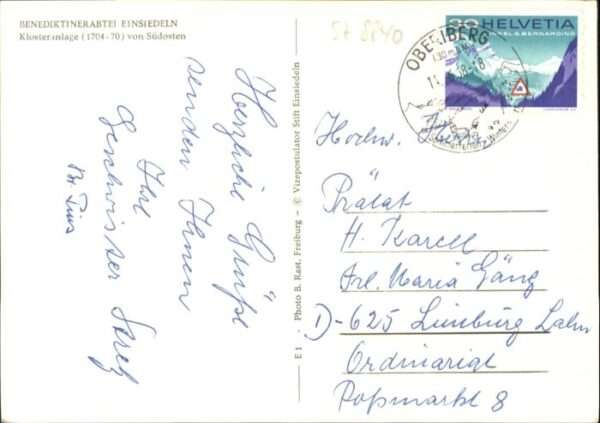 BENEDIKTINERABTEI EINSIEDELN
Klosteranlage (1704-70) von Südosten
Herzliche Grüße
senden Ihnen
Ihre
Geschwister
Br. Pius
E 1 - Photo B. Rast, Freiburg - © Vizepostulator Stift Einsiedeln
57 8840
30 HELVETIA
TUNNEL S. BERNARDINO
OBERIBERG
Hochw. Herrn
Prälat
H. Karell
Frl. Maria Gäng
D-625 Limburg Lahn
Ordinariat
Roßmarkt 8